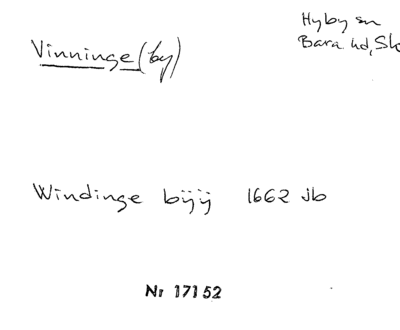 Vinninge (by)
Hyby sn
Bara hd, Sk
Windinge bÿÿ 1662 Jb
Nr 17152